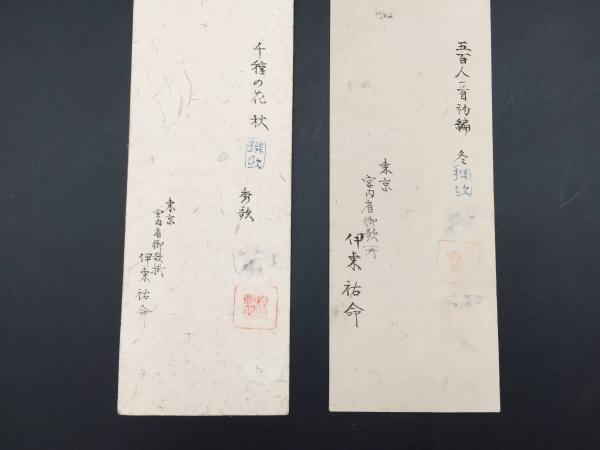 五百人一首初編 冬 撰歌
東京
宮内省御歌所
伊東祐命
千種の花 秋 撰歌 秀歌
東京
宮内省御歌掛
伊東祐命